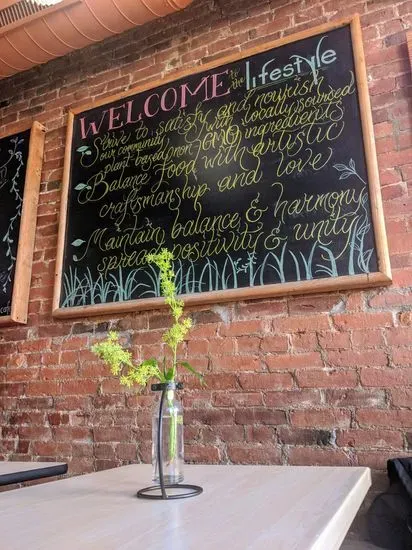 WELCOME to the lifestyle
Strive to satisfy and nourish
our community with locally sourced
plant based non-GMO ingredients
Balance food with artistic
craftsmanship and love
Maintain balance & harmony
spread positivity & unity